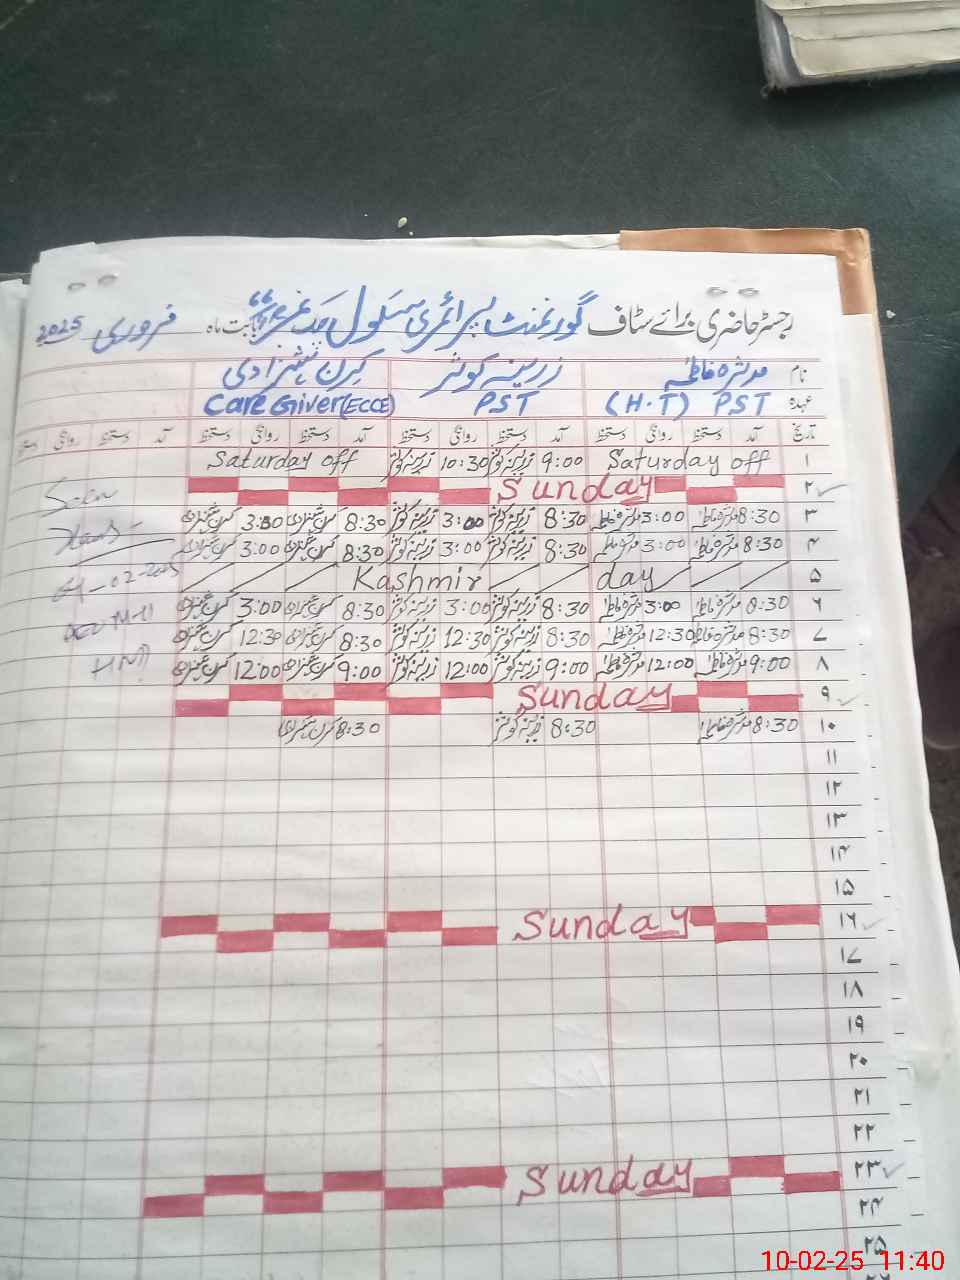 رجسٹر حاضری برائے سٹاف گورنمنٹ پرائمری سکول بابت ماہ فروری 2025
نام مدثرہ فاطمہ زرینہ کوثر کرن شہزادی
عہدہ PST (H.T) PST Care Giver (ECCE)
تاریخ آمد دستخط روانگی دستخط آمد دستخط روانگی دستخط آمد دستخط روانگی دستخط آمد دستخط روانگی دستخط
۱ Saturday off 9:00 زرینہ کوثر 10:30 زرینہ کوثر Saturday off
۲ Sunday
۳ 8:30 مدثرہ فاطمہ 3:00 مدثرہ فاطمہ 8:30 زرینہ کوثر 3:00 زرینہ کوثر 8:30 کرن شہزادی 3:00 کرن شہزادی
۴ 8:30 مدثرہ فاطمہ 3:00 مدثرہ فاطمہ 8:30 زرینہ کوثر 3:00 زرینہ کوثر 8:30 کرن شہزادی 3:00 کرن شہزادی
۵ Kashmir day
۶ 8:30 مدثرہ فاطمہ 3:00 مدثرہ فاطمہ 8:30 زرینہ کوثر 3:00 زرینہ کوثر 8:30 کرن شہزادی 3:00 کرن شہزادی
۷ 8:30 مدثرہ فاطمہ 12:30 مدثرہ فاطمہ 8:30 زرینہ کوثر 12:30 زرینہ کوثر 8:30 کرن شہزادی 12:30 کرن شہزادی
۸ 9:00 مدثرہ فاطمہ 12:00 مدثرہ فاطمہ 9:00 زرینہ کوثر 12:00 زرینہ کوثر 9:00 کرن شہزادی 12:00 کرن شہزادی
۹ Sunday
۱۰ 8:30 مدثرہ فاطمہ 8:30 زرینہ کوثر 8:30 کرن شہزادی
۱۱
۱۲
۱۳
۱۴
۱۵
۱۶ Sunday
۱۷
۱۸
۱۹
۲۰
۲۱
۲۲
۲۳ Sunday
۲۴
۲۵
10-02-25 11:40